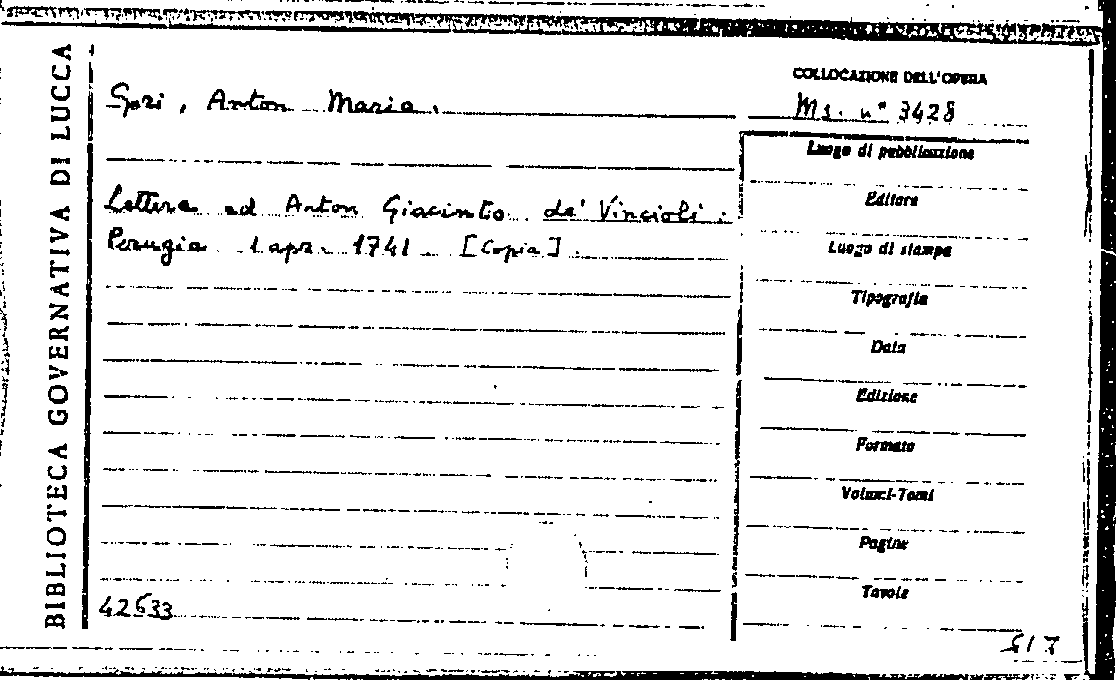 BIBLIOTECA GOVERNATIVA DI LUCCA
Gori, Anton Maria.
COLLOCAZIONE DELL'OPERA
Ms. n° 3428
Lettera ad Anton Giacinto de' Vincioli.
Perugia 1 apr. 1741 - [Copia].
Luogo di pubblicazione
Editore
Luogo di stampa
Tipografia
Data
Edizione
Formato
Volumi-Tomi
Pagine
Tavole
42633